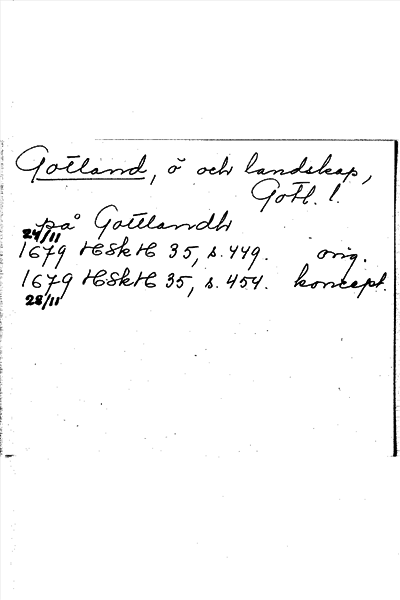 Gotland, ö och landskap,
Gotl. l.
på Gottlandh
24/11
1679 HSkH 35, s. 449. orig.
1679 HSkH 35, s. 454. koncept.
28/11